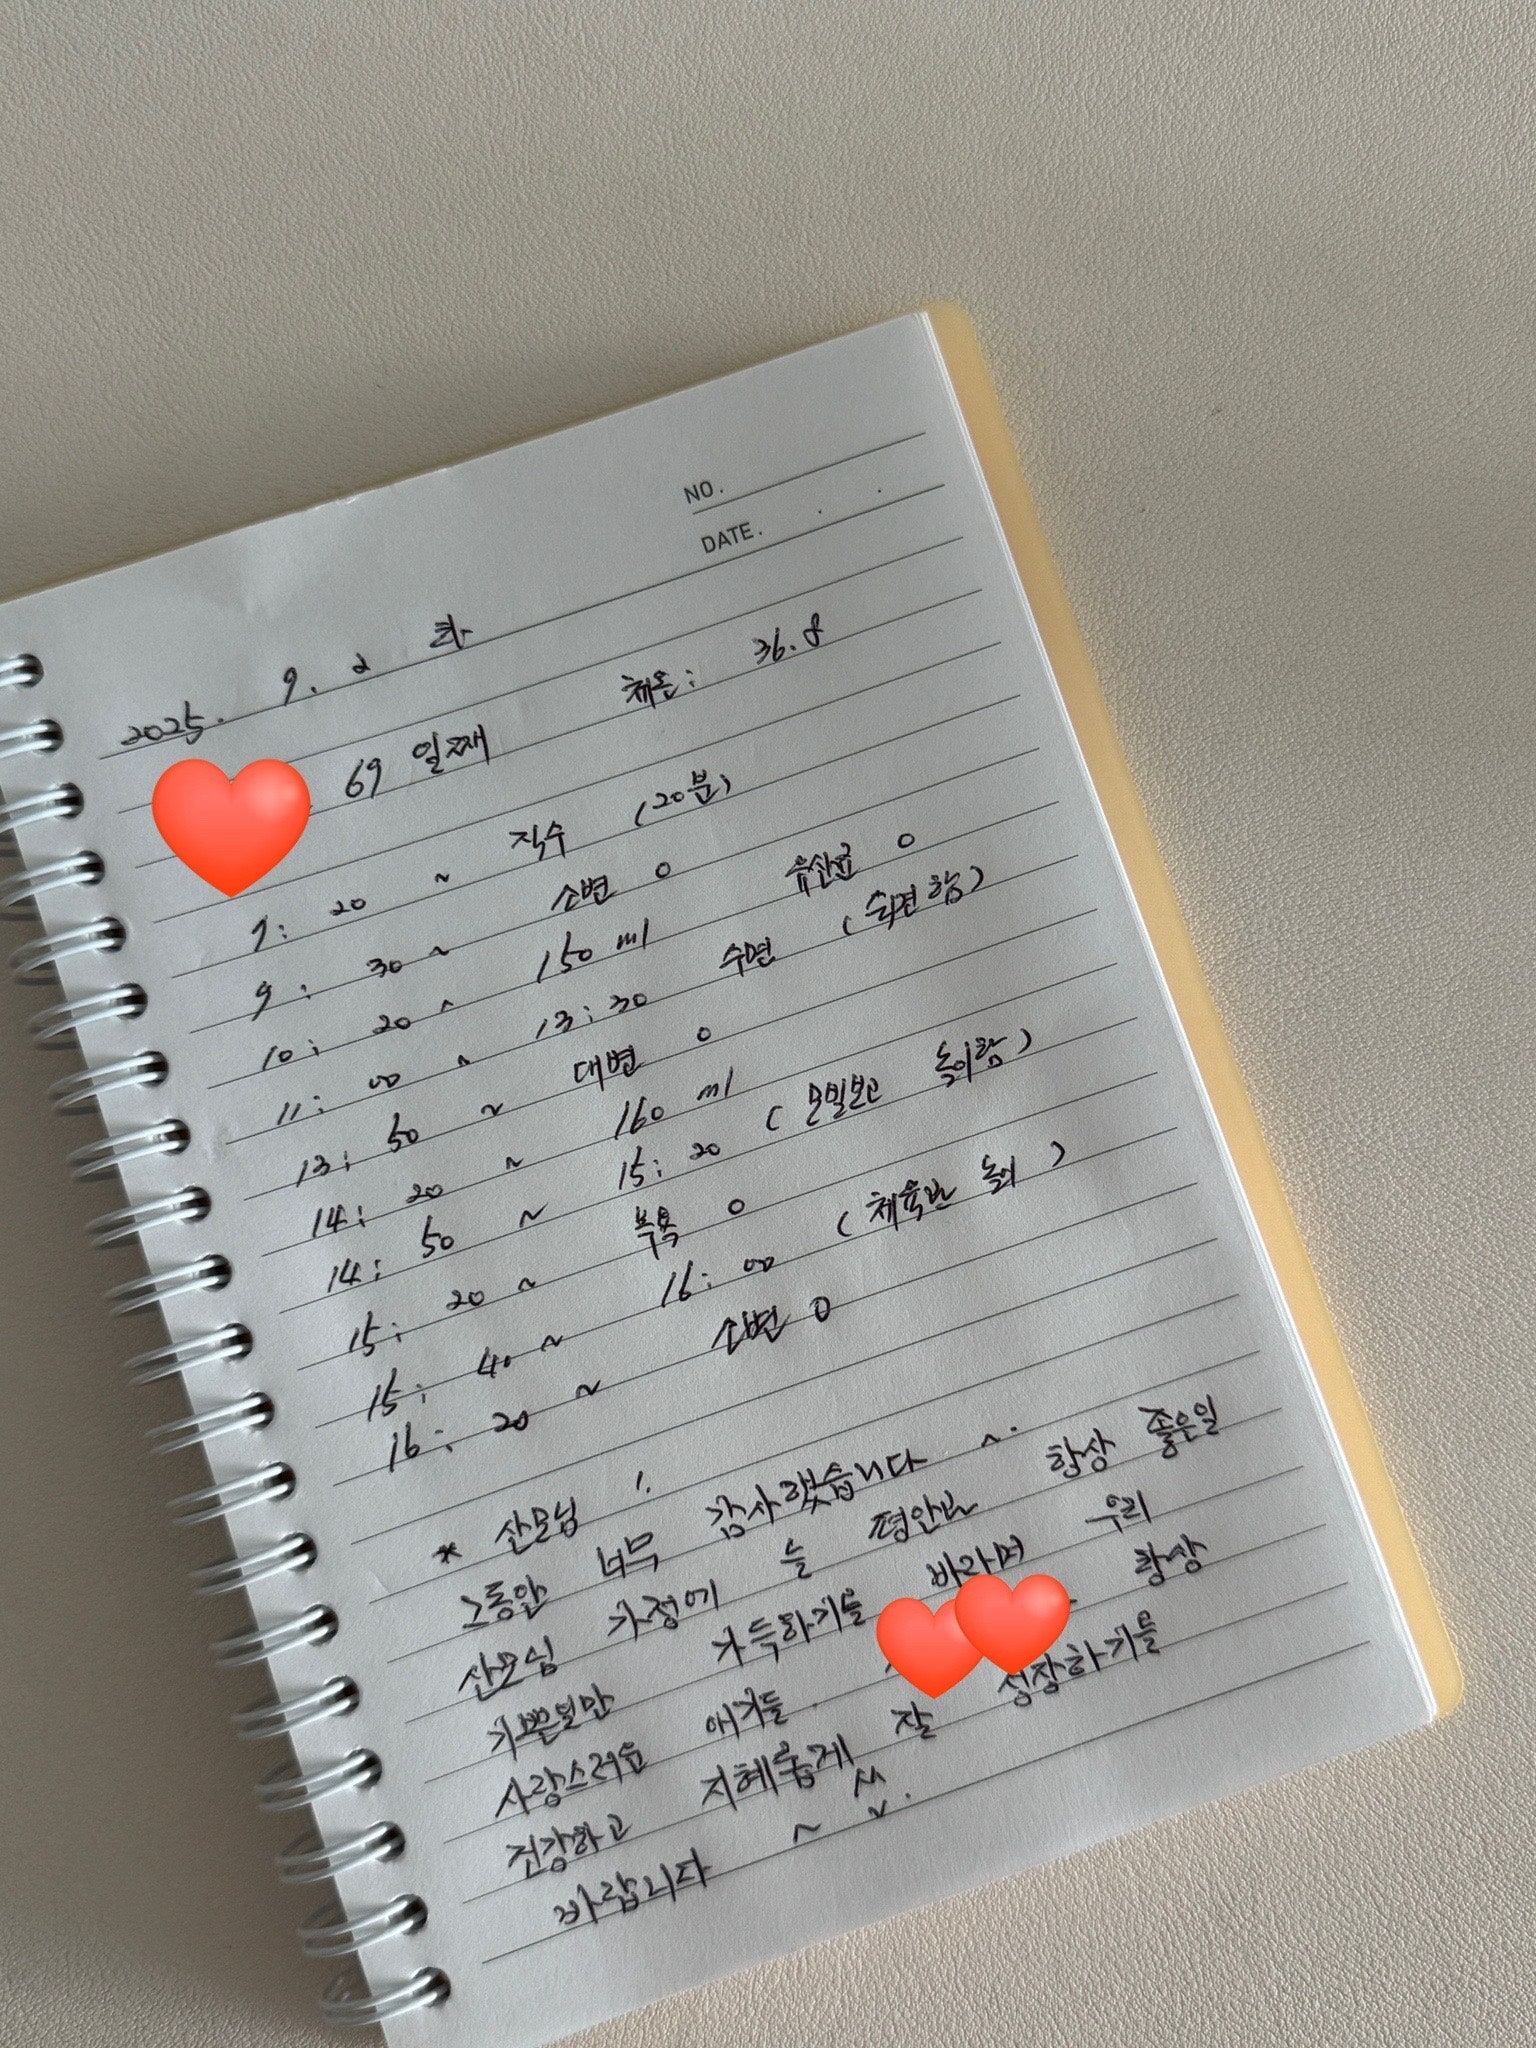 NO.
DATE. . .
2025. 9. 2 화
69 일째 체온: 36.8
9: 20 ~ 직수 (20분)
9: 30 ~ 소변 O
10: 20 ~ 150 ml 유산균 O
11: 00 ~ 13:30 수면 (쉬면함)
13: 50 ~ 대변 O
14: 20 ~ 160 ml
14: 50 ~ 15: 20 (모빌보고 놀이함)
15: 20 ~ 목욕 O
15: 40 ~ 16: 00 (체육관 놀이)
16: 20 ~ 소변 O
* 산모님 !
그동안 너무 감사했습니다 ~.
산모님 가정에 늘 평안과 항상 좋은일
기쁜일만 가득하기를 바라며 우리
사랑스러운 애기들 항상
건강하고 지혜롭게 잘 성장하기를
바랍니다 ~